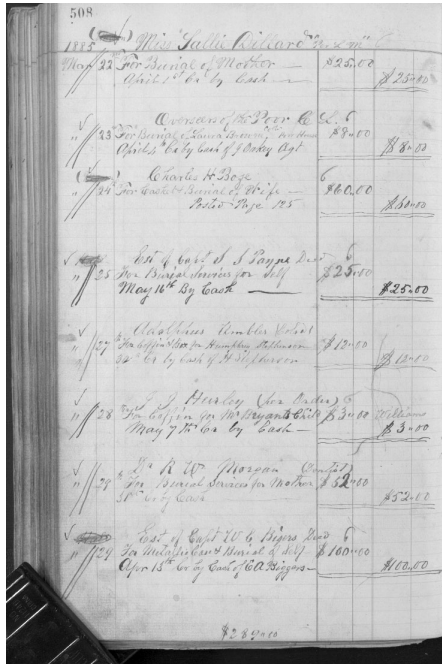 508
1885 Miss Sallie Dillard
Mar 22 For Burial of Mother — $25.00
April 1st Cr by Cash — $25.00
Overseers of the Poor C L 6
" 23 For Burial of Laura $8.00
April 4th Cr by Cash of J Oakey Agt $8.00
Charles H Boze 6
" 24 For Casket & Burial of Wife — $60.00
Posted Page 125 $60.00
Est of Capt S J Payne Decd 6
" 25 For Burial Services for Self $25.00
May 16th By Cash — $25.00
Adolphus Ambler Colored
" 27 For Coffin & Box for Humphrey Stepherson $12.00
Cr by Cash of H Stepherson $12.00
J J Hurley (for Order) 6
" 28 For Coffin for Mr Bryants Child $3.00 Williams
May 7th Cr by Cash — $3.00
Dr R W Morgan (Dentist)
" 29 For Burial Services for Mother $52.00
Cr by Cash $52.00
Est of Capt W C Bigers Decd 6
" 29 For Metalic Case & Burial of Self $100.00
Apr 15th Cr by Cash of C A Biggers — $100.00
$289.00